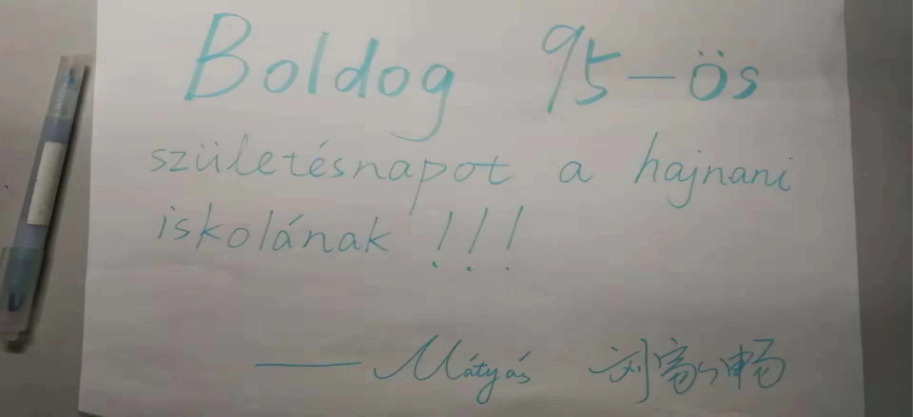 Boldog 95-ös
születésnapot a hajnani
iskolának !!!
— Mátyás 刘富畅